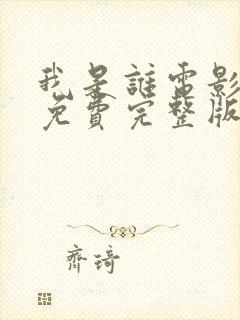 我是誰電影
免費完整版
齊琦